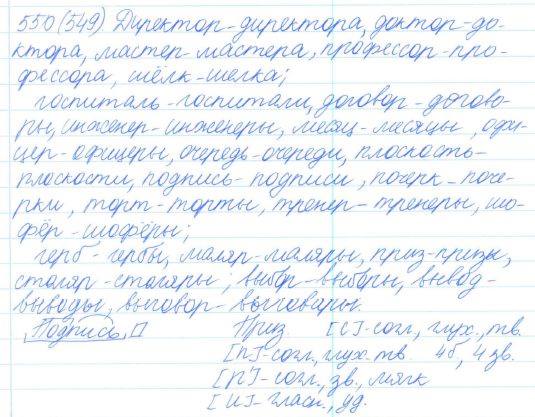 550(549) Директор-директора, доктор-до-
ктора, мастер-мастера, профессор-про-
фессора, шёлк-шелка;
госпиталь-госпитали, договор-догово-
ры, инженер-инженеры, месяц-месяцы, офи-
цер-офицеры, очередь-очереди, плоскость-
плоскости, подпись-подписи, почерк-поче-
рки, торт-торты, тренер-тренеры, шо-
фёр-шофёры;
герб-гербы, маляр-маляры, приз-призы,
столяр-столяры; выбор-выборы, вывод-
выводы, выговор-выговары.
Подпись Приз [С]-согл., глух., тв.
[п]-согл., глух. тв. 4б, 4 зв.
[р']-согл., зв., мягк
[и]-гласн., уд.